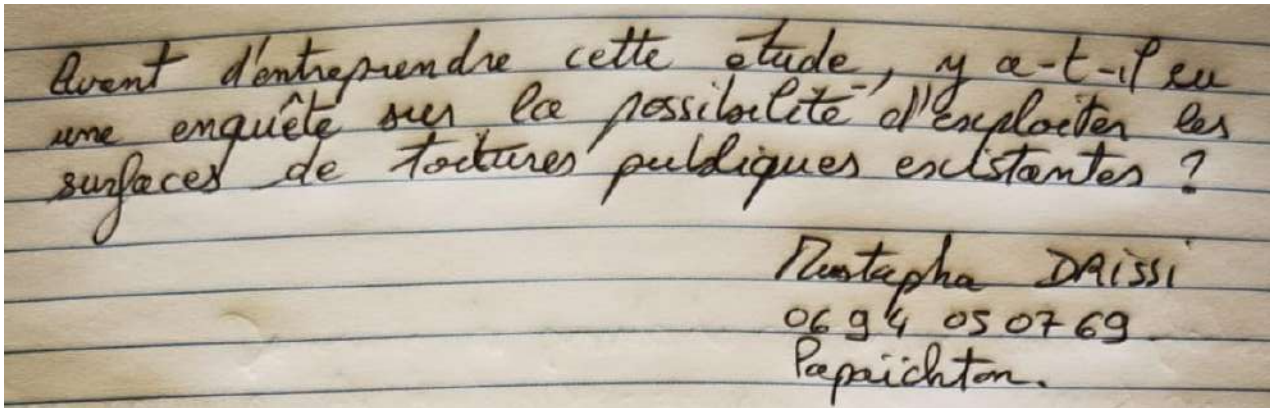 Avant d'entreprendre cette étude, y a-t-il eu
une enquête sur la possibilité d'exploiter les
surfaces de toitures publiques existantes ?
Mustapha DRissi
06 94 05 07 69
Papaïchton.